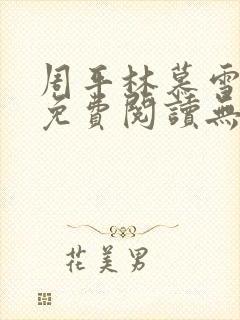 周平林慕雪
免費閱讀無
花美男